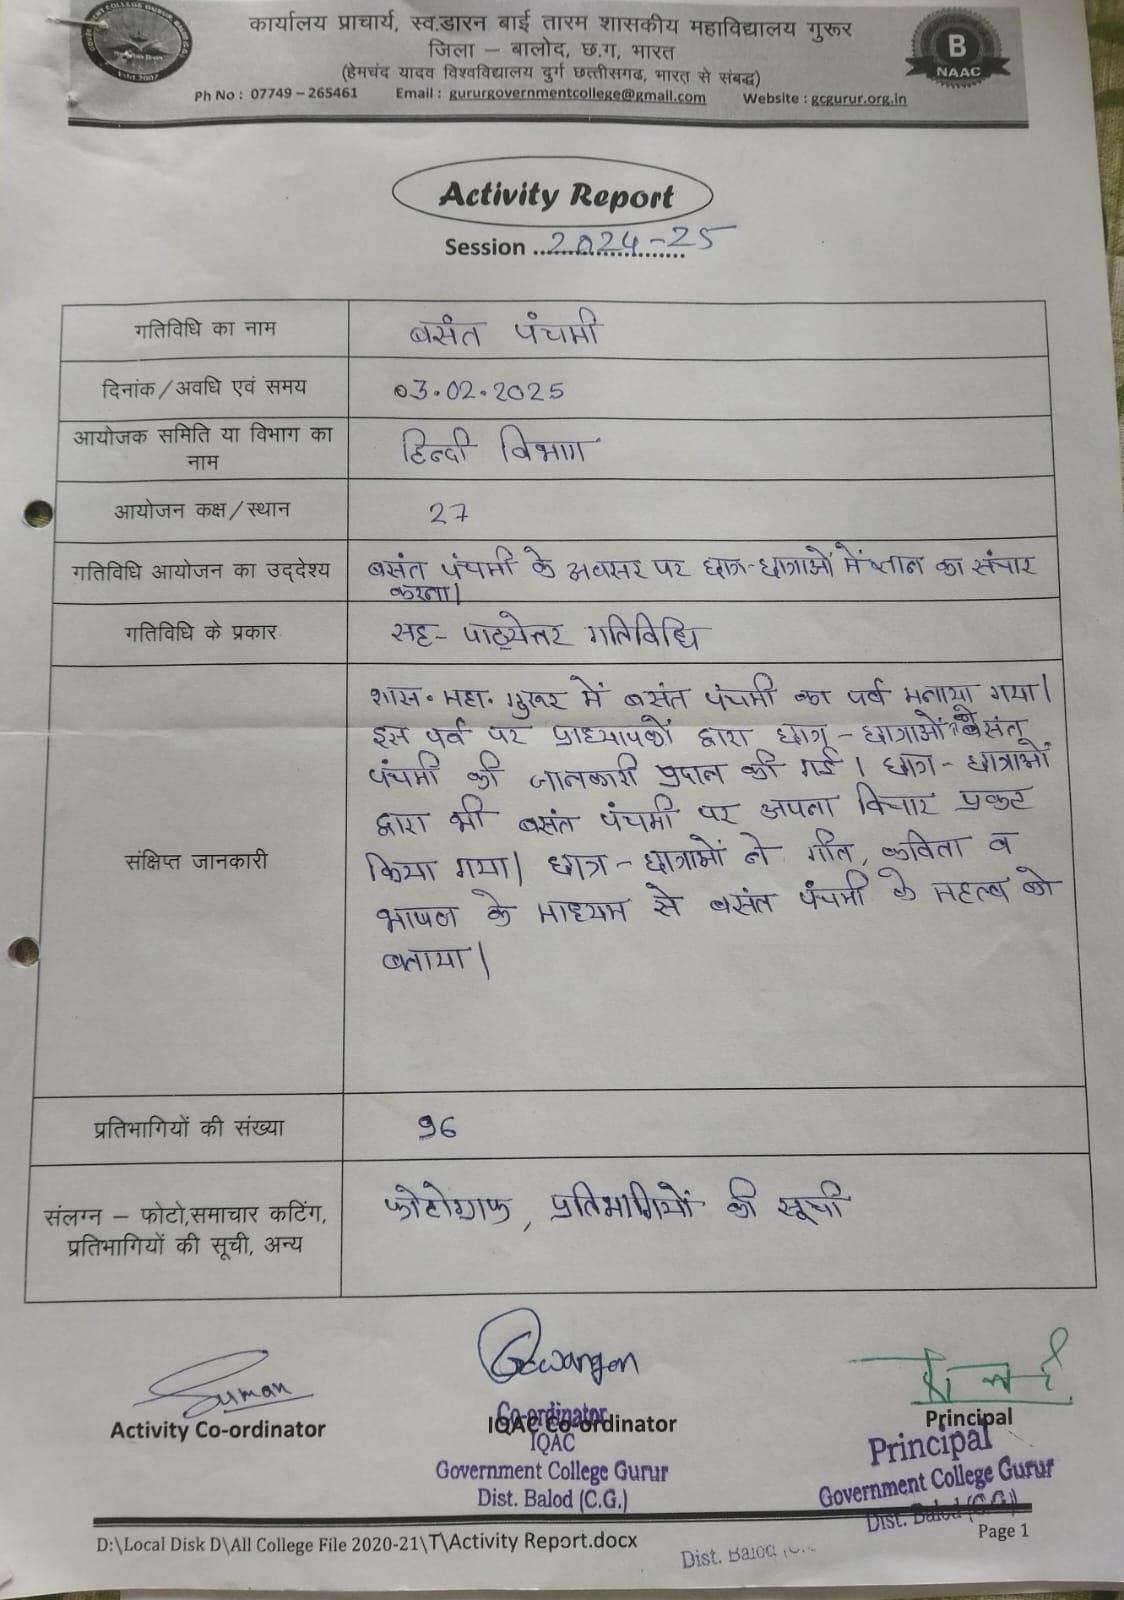 कार्यालय प्राचार्य, स्व.डारन बाई तारम शासकीय महाविद्यालय गुरूर
जिला – बालोद, छ.ग, भारत
(हेमचंद यादव विश्वविद्यालय दुर्ग छत्तीसगढ, भारत से संबद्ध)
Ph No : 07749 – 265461 Email : gururgovernmentcollege@gmail.com Website : gcgurur.org.in
B
NAAC
Activity Report
Session ..2024-25
गतिविधि का नाम बसंत पंचमी
दिनांक/अवधि एवं समय 03.02.2025
आयोजक समिति या विभाग का
नाम हिन्दी विभाग
आयोजन कक्ष/स्थान 27
गतिविधि आयोजन का उद्देश्य बसंत पंचमी के अवसर पर छात्र-छात्राओं में ज्ञान का संचार
करना।
गतिविधि के प्रकार सह- पाठ्येत्तर गतिविधि
संक्षिप्त जानकारी
शास. महा. गुरूर में बसंत पंचमी का पर्व मनाया गया।
इस पर्व पर प्राध्यापकों द्वारा छात्र-छात्राओं को बसंत
पंचमी की जानकारी प्रदान की गई। छात्र-छात्राओं
द्वारा भी बसंत पंचमी पर अपना विचार प्रकट
किया गया। छात्र-छात्राओं ने गीत, कविता व
भाषण के माध्यम से बसंत पंचमी के महत्व को
बताया।
प्रतिभागियों की संख्या 96
संलग्न – फोटो,समाचार कटिंग,
प्रतिभागियों की सूची, अन्य
फोटोग्राफ, प्रतिभागियों की सूची
Suman
Dewangan
Activity Co-ordinator
IQAC Co-ordinator
Principal
Co-ordinator
IQAC
Government College Gurur
Dist. Balod (C.G.)
Principal
Government College Gurur
Dist. Balod (C.G.)
D:\Local Disk D\All College File 2020-21\T\Activity Report.docx
Page 1
Dist. Balod